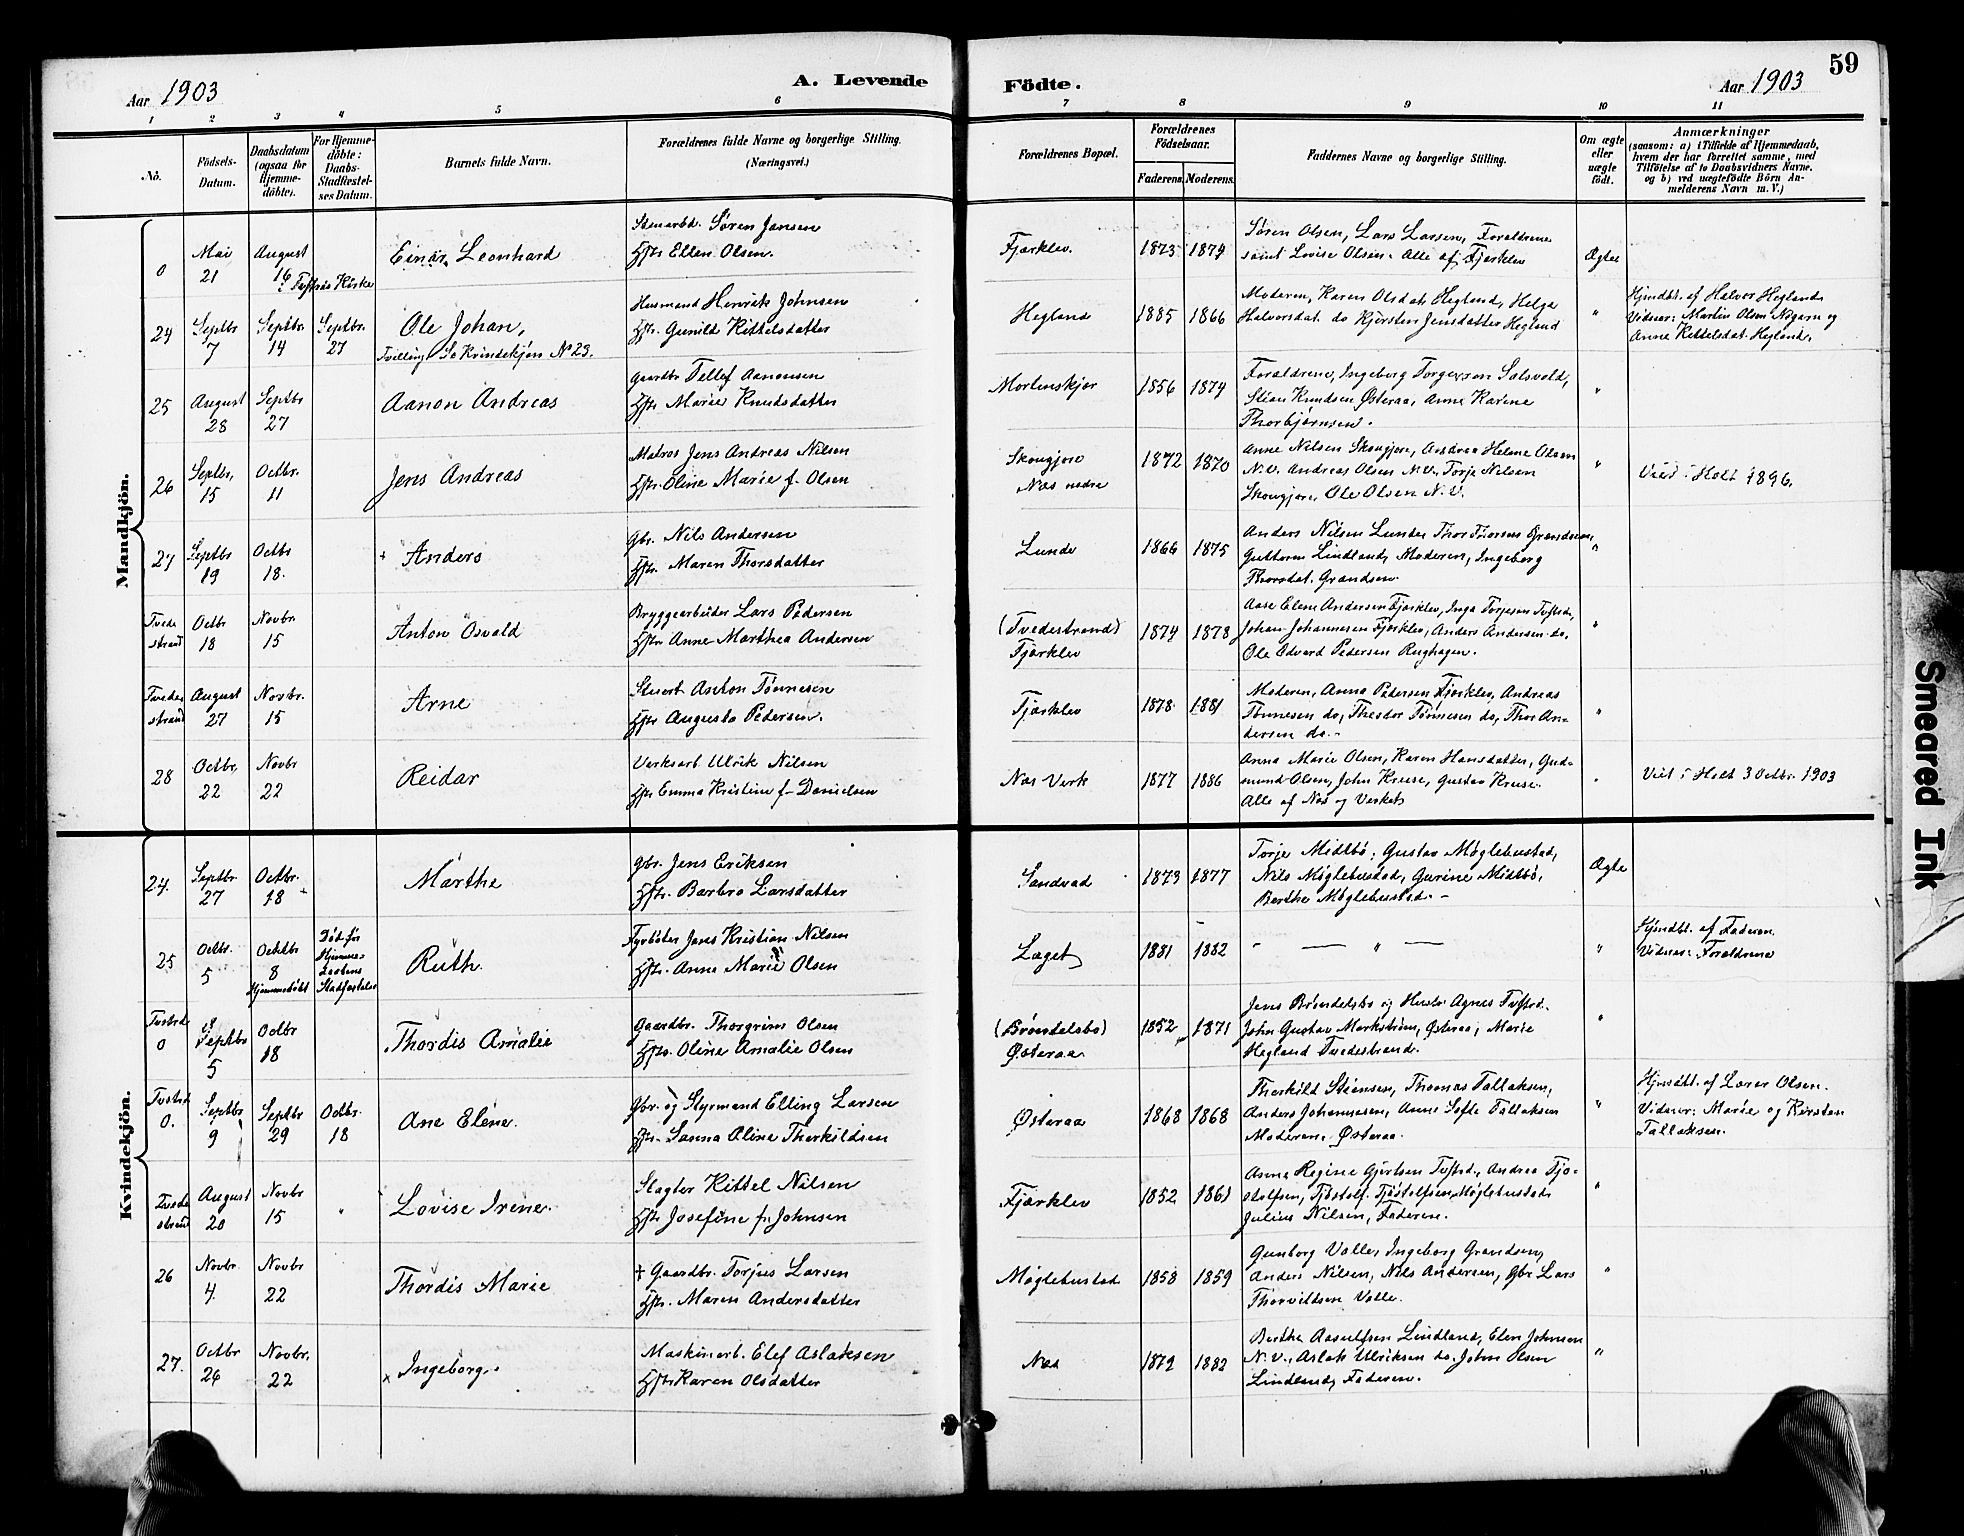 59
Aar 1903
A. Levende
Födte.
Aar 1903
1 2 3 4 5 6 7 8 9 10 11
No.
Födsels-Datum.
Daabsdatum (ogsaa for Hjemme-döbte).
For Hjemme-döbte: Daabs-Stadfæstel-ses Datum.
Barnets fulde Navn.
Forældrenes fulde Navne og borgerlige Stilling.
(Næringsvei.)
Forældrenes Bopæl.
Forældrenes Födselsaar.
Faderens. Moderens.
Faddernes Navne og borgerlige Stilling.
Om ægte eller uægte födt.
Anmærkninger
(saasom: a) i Tilfælde af Hjemmedaab,
hvem der har forrettet samme, med
Tilföielse af to Daabsvidners Navne.
og b) ved uægtefödte Börn An-
melderens Navn m. V.)
Mandkjön.
0
Mai 21
August 16
Kirke
Einar Leonhard
Stenarbd. Søren Jansen
Hstr Ellen Olsen.
Fjærklev.
1873 1874
Søren Olsen, Lars Larsen, Forældrene
samt Lovise Olsen. Alle af Fjærklev
Ægte
24
Septbr 7
Septbr. 14
Septbr. 27
Ole Johan,
Tvilling Se Kvindekjøn No 23.
Husmand Henrik Johnsen
Hstr. Gunild Kittelsdatter
Hegland
1885 1866
Moderen, Karen Olsdat. Hegland, Helga
Halvorsdat. do Kjersten Jensdatter Hegland
"
Hjmdbt. af Halvor Hegland
Vidner: Martin Olsen og
Anne Kittelsdat. Hegland.
25
August 28
Septbr 27
Aanon Andreas
Gaardbr Tellef Aanonsen
Hstr Marie Knudsdatter
Mortenskjær
1856 1874
Forældrene, Ingeborg Torgersen
Stian Knudsen Østeraa, Anne Karine
Thorbjørnsen.
"
26
Septbr, 15
Octbr. 11
Jens Andreas
Matros Jens Andreas Nilsen
Hstr. Oline Marie f. Olsen
Skougjore
Næs nedre
1872 1870
Anne Nilsen Skougjore, Andrea Helene Olsen
N.V. Andreas Olsen N.V., Torje Nilsen
Skougjore, Ole Olsen N.V.
"
Viet i Holt 1896.
27
Septbr 19
Octbr 18.
+ Anders
Gbr. Nils Andersen
Hstr. Maren Thorsdatter
Lunde
1866 1875
Anders Nilsen Lunde, Thor Grandsen,
Guttorm Lindland, Moderen, Ingeborg
Thorsdat. Grandsen.
"
Tvede strand
Octbr 18
Novbr. 15
Anton Osvald
Bryggearbeider Lars Pedersen
Hstr Anne Marthea Andersen
(Tvedestrand)
Fjærklev
1874 1878
Aase Elene Andersen Fjærklev, Inga Torjesen Tvstrd,
Johan Johannesen Fjærklev, Anders Andersen do,
Ole Edvard Pedersen
"
Tvede strand
August 27
Novbr. 15
Arne
Stuert Anton Tønnesen
Hstr Augusta Pedersen.
Fjærklev
1878 1881
Moderen, Anna Pedersen Fjærklev, Andreas
Tønnesen do, Theodor Tønnesen do, Thor An-
dersen do.
"
28
Octbr, 22
Novbr 22
Reidar
Verksarb Ulrik Nilsen
Hstr Emma Kristine f. Danielsen
Næs Verk
1877 1886
Anna Marie Olsen, Karen Hansdatter, Gud-
mund Olsen, John Kruse, Gustav Kruse.
Alle af Næs og Verket
"
Viet i Holt 3 Octbr. 1903
Kvindekjön.
24.
Septbr. 27
Octbr. 18
Marthe
Gbr. Jens Eriksen
Hstr. Barbro Larsdatter
Sandvad
1873 1877
Torje Midtbö, Gustav Møglebustad,
Nils Møglebustad, Gurine Midtbö,
Berthe Møglebustad.
Ægte
25
Octbr. 5
Octbr 8
Hjemmedöbt
Død før Hjemme-daabens Stadfæstelse
Ruth.
Fyrbøter Jens Kristian Nilsen
Hstr. Anne Marie Olsen
Laget
1881 1882
"
"
Hjmdbt. af Faderen.
Vidner: Forældrene
Tvstrd 0
Septbr 5
Octbr 18
Thordis Amalie
Gaardbr. Thorgrim Olsen
Hstr. Oline Amalie Olsen
(Brøndelsbo)
Østeraa
1852 1871
Jens Brøndelsbo og Hustr Agnes Tvstrd.
John Gustav Markstrøm, Østeraa, Marie
Hegland Tvedestrand.
"
Tvstrd 0.
Septbr 9
Septbr 29
Octbr. 18
Ane Elene.
Gbr. og Styrmand Elling Larsen
Hstr. Sanna Oline Therkildsen
Østeraa
1868 1868
Therkild Stiansen, Thomas Tallaksen,
Anders Johannesen, Anne Sofie Tallaksen
Moderen. Østeraa.
"
Hjmdbt. af Olsen.
Vidner: Marie og Kirsten
Tallaksen.
Tvede strand
August 20
Novbr 15
"
Lovise Irene.
Slagter Kittel Nilsen
Hstr Josefine f. Johnsen
Fjærklev
1852 1861
Anne Regine Gjertsen Tvstrd., Andrea Tjø-
stolfsen, Tjøstolf Tjøstolfsen, Møglebustad
Julius Nilsen, Faderen.
"
26
Novbr. 4.
Novbr 22
Thordis Marie
+ Gaardbr. Torjus Larsen
Hstr. Maren Andersdatter
Møglebustad
1858 1859
Gunborg Valle, Ingeborg Grandsen,
Anders Nilsen, Nils Andersen, Gbr Lars
Thorvildsen Valle.
"
27.
Octbr 26
Novbr. 22
x Ingeborg.
Maskinarb. Elef Aslaksen
Hstr Karen Olsdatter
Næs
1879 1882
Berthe Aasulfsen Lindland, Elen Johnsen
N.V., Aslak Ulriksen do. John Olsen
Lindland, Faderen.
"
Smeared Ink